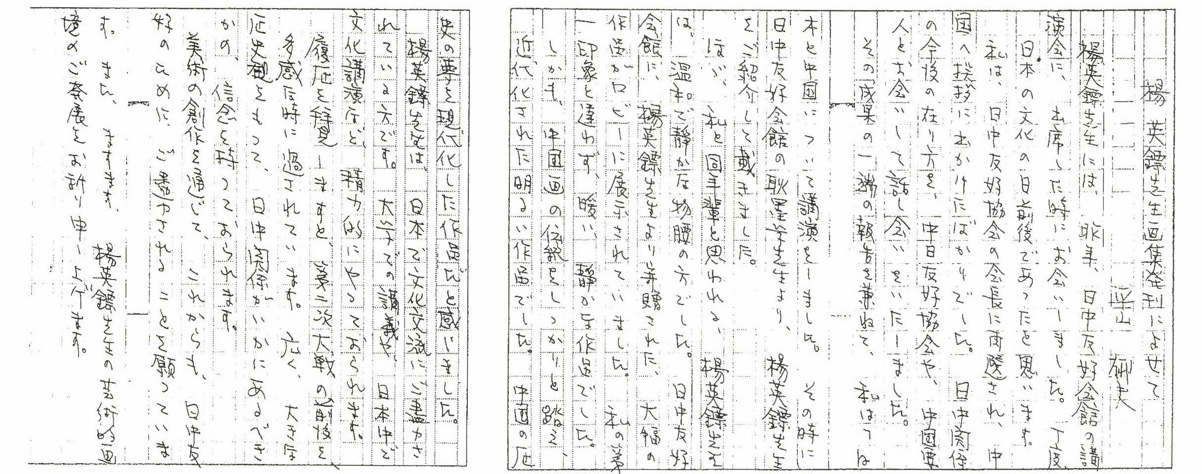 楊英鏢先生画集発刊によせて
平山郁夫
楊英鏢先生には、昨年、日中友好会館の講
演会に、出席した時にお会いしました。丁度
日本の文化の日前後であったと思います。
私は、日中友好協会の会長に再選され、中
国へ挨拶に出かけたばかりでした。日中関係
の今後の在り方を、中日友好協会や、中国要
人とお会いして話し会いをいたしました。
その成果の一端の報告を兼ねて、私は日
本と中国について講演をしました。その時に
日中友好会館の耿墨学先生より、楊英鏢先生
をご紹介して戴きました。
ほゞ、私と同年輩と思われる、楊英鏢先生
は、温和で静かな物腰の方でした。日中友好
会館に、楊英鏢先生より寄贈された、大幅の
作品がロビーに展示されていました。私の第
一印象と違わず、暖い、静かな作品でした。
しかも、中国画の伝統をしっかりと踏え、
近代化された明るい作品でした。中国の歴
史の夢を現代化した作品だと感じました。
楊英鏢先生は、日本で文化交流にご盡力さ
れている方です。大学での講義や、日本中で
文化講演など、精力的にやっておられます。
履歴を拝見しますと、第二次大戦の前後を
多感な時に過されています。広く、大きな
歴史観をもって、日中関係がいかにあるべき
かの、信念を持っておられます。
美術の創作を通して、これからも、日中友
好のために、ご盡力されることを願っていま
す。また、ますます、楊英鏢先生の芸術的画
境のご発展をお祈り申し上げます。